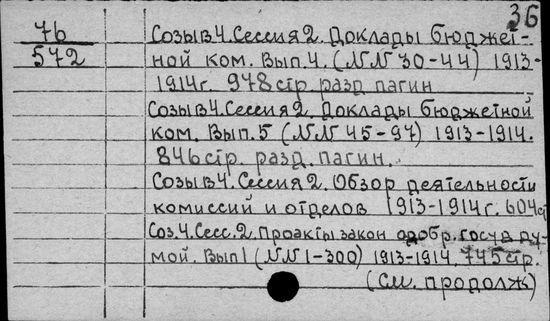 36
76
572
Созыв 4. Сессия 2. Доклады бюджет-
ной ком. Вып. 4. (NN 30-44) 1913-
1914г. 978 стр. разд пагин
Созыв 4. Сессия 2. Доклады бюджетной
ком. Вып. 5 (NN 45-97) 1913-1914.
846 стр. разд. пагин.
Созыв 4. Сессия 2. Обзор деятельности
комиссий и отделов 1913-1914г. 604 ст
Соз. 4. Сесс. 2. Проэкты закон одобр. госуд ду-
мой. Вып 1 (NN 1-300) 1913-1914. 745 стр.
(См. продолж)